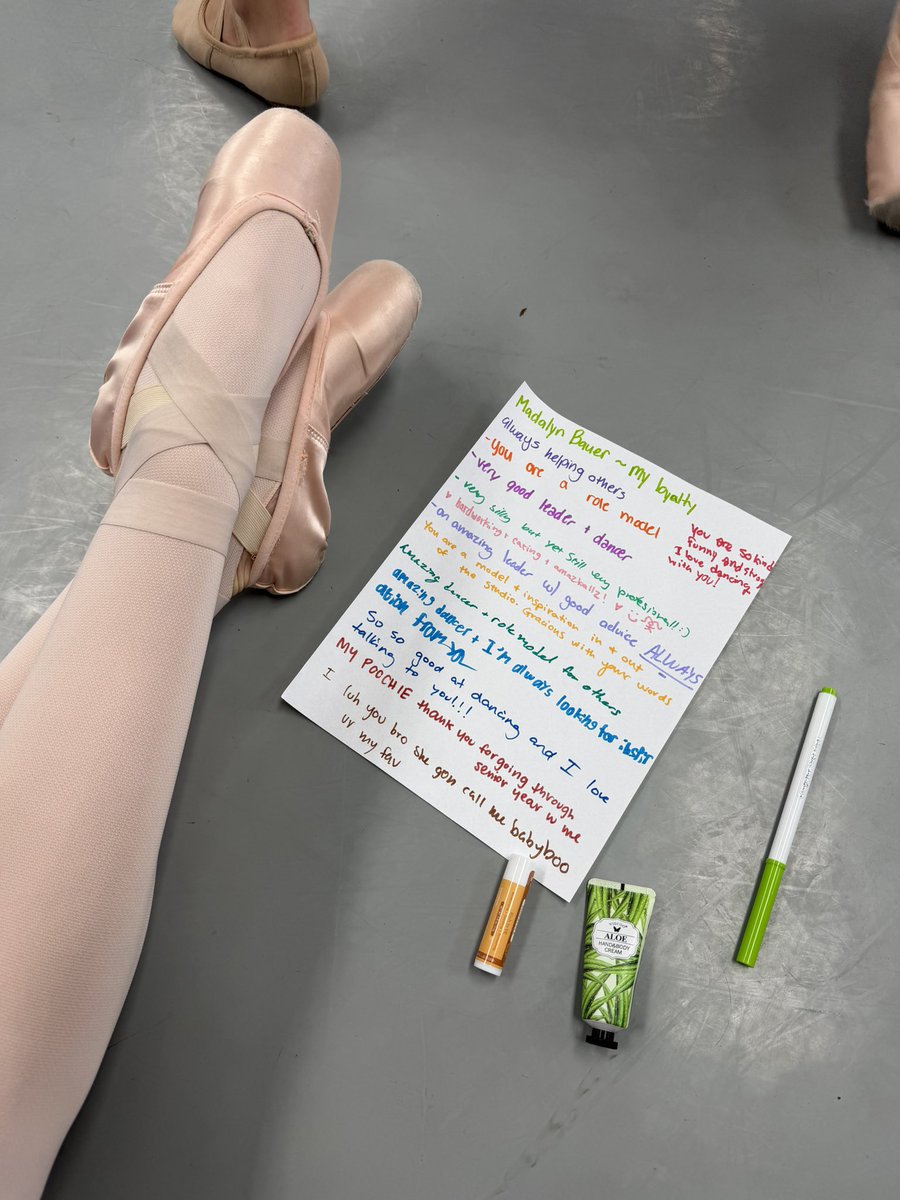 Madalyn Bauer ~ My loyalty
always helping others
-you are a role model
-very good leader + dancer
-very silly but yet still very profesional! :)
♥ hardworking + caring + amazballz! ♥
-an amazing leader w/ good advice ALWAYS
You are a model + inspiration in + out
of the studio. Gracious with your words
Amazing dancer + role model for others
amazing dancer + I'm always looking for inspir
ation from
So so good at dancing and I love
talking to you!!!
MY POOCHIE thank you for going through
senior year w me
I luh you bro she gon call me babyboo
ur my fav
You are so kind
funny and strong
I love dancing
with you!
ALOE
HAND&BODY
CREAM